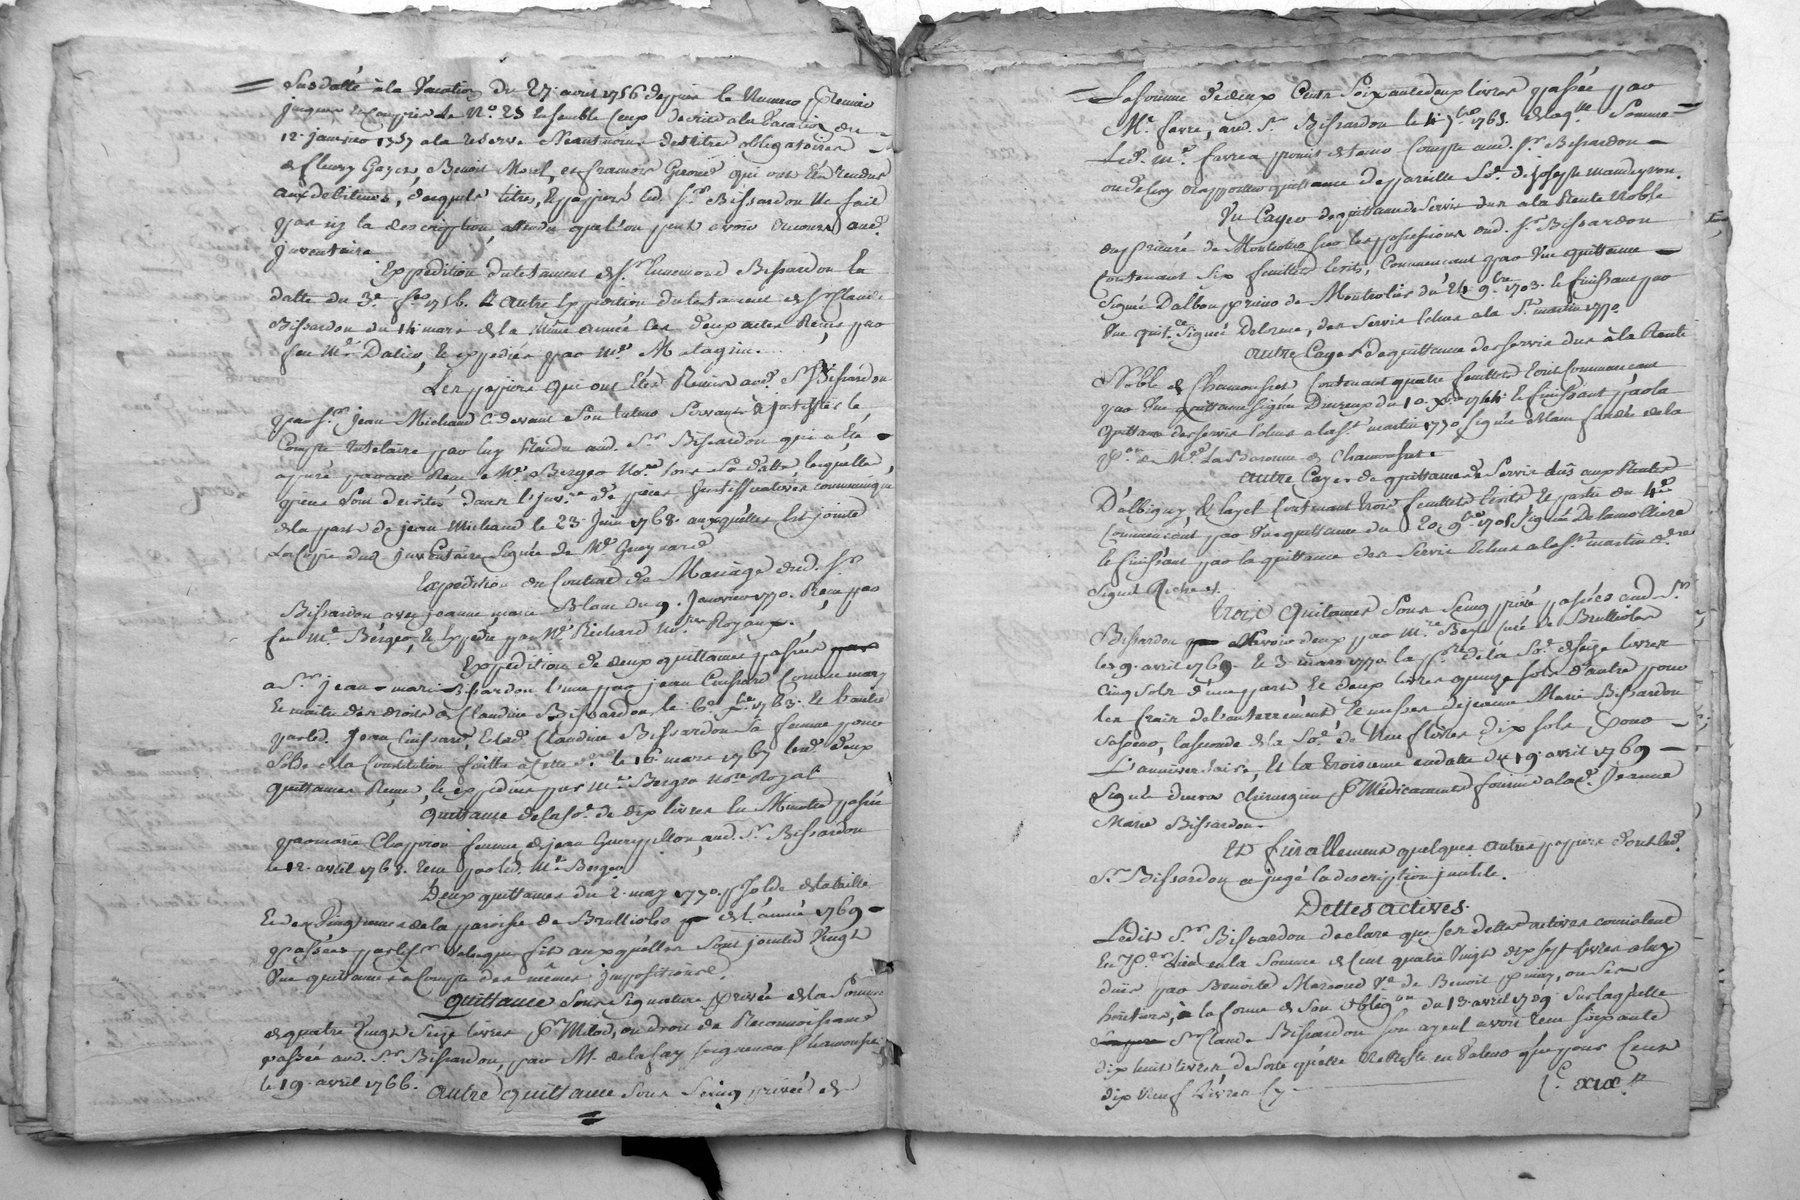 Susdatté à la Vacation du 27 avril 1756 depuis le Numero premier
jusques et Compris Le N.o 25 Ensemble Ceux decrits a la Vacation du
12 janvier 1757 a la reserve Neantmoins des titres obligatoires
de fleury Goyet, Benoit Morel, et francois Giroud qui ont Eté rendus
aux debiteurs, desquels titres, Et papiers led. S.r Bissardon Ne fait
pas icy la description, attendu que l'on peut avoir recours aud.
Inventaire
Expedition du testament de S.r Ennemond Bissardon En
datte du 3.e 1756. Et autre Expedition du testament de S.r Claude
Bissardon du 14 mars de la même année Ces deux actes Recus par
feu M.e Dalier, Et expediés par M.e
Les papiers qui ont Eté Remis aud. S.r Bissardon
par S.r Jean Michaud Cy devant Son tuteur Servants à justifier le
Compte tutelaire par luy Rendu aud. S.r Bissardon qui a été
apuré pardevant M.e Berger No.re Sous Sa datte, lesquelles
pieces Sont decrites dans l'inv.re de pieces justifficatives communiqué
de la part de jean Michaud le 23 Juin 1768 auxquelles Est jointe
La Copie dud. inventaire Signée de M.e Guynard
Expedition du Contrat de Mariage dud. S.r
Bissardon avec jeanne marie Blanc du 9. Janvier 1770. Recu par
feu M.e Berger, Et Expedié par M.e Richard No.res Royaux.
Expedition de deux quittances passées par
a S.r jean-marie Bissardon l'une par jean Cuissard Comme mary
Et maitre des droits de Claudine Bissardon le 6.e 1763. Et l'autre
par led. Jean Cuissard, Et lad. Claudine Bissardon Sa femme pour
Solde de la Constitution faitte a Cette d.re le 16 mars 1767 lesd. deux
quittances Recues, Et expediées par M.e Berger No.re Royal
Quittance de la So.e de dix livres En Minutte passée
par marie Chapiron femme de jean aud. S.r Bissardon
le 12 avril 1768. recue par led. M.e Berger
Deux quittances du 2 may 1770. p.r Solde de la taille
Et des Vingtiemes de la paroisse de Brulliolles de l'année 1769
passées par les S.rs auxquelles Sont jointes Vingt
Une quittances à Compte des mêmes impositions.
Quittance Sous Signature privée de la Somme
de quatre Vingt Seize livres p.r Milod, ou droit de Reconnoissance
passée aud. S.r Bissardon, par M. delafay Seigneur
le 19 avril 1766. Autre quittance Sous Seing privée de
La Somme de deux Cents Soixante deux livres passée par
M.e favre, aud. S.r Bissardon le 4 7.bre 1765. de laq.lle Somme
Led. M.e favre a promis de tenir Compte aud. S.r Bissardon
ou de luy rapporter quittance de pareille So.e de joseph mandeyron.
Un Cayer de quittances de Servis dus a la Rente Noble
du prieuré de Montrotier Sur les possessions dud. S.r Bissardon
Contenant Six feuillets Ecrits, Commencant par Une quittance
Signée Dalbon prieur de Montrotier du 24 9.bre 1703. Et finissant par
Une quit.ce Signée Delorme, des Servis Echus a la S.t martin 1770
Autre Cayer de quittances des servis dus à la Rente
Noble de Chamousset Contenant quatre feuillets Ecrits Commencant
par Une quittance Signée Dureux du 10 1744 Et finissant par la
quittance des servis Echus a la S.t martin 1770 Signée
de M.e La Baronne de Chamousset.
Autre Cayer de quittances de Servis dûs aux Rentes
D'albigny Et Layel Contenant trois feuillets Ecrits Et partie du 4.me
Commencant par Une quittance du 20 9.bre 1708 Signée Delamolliere
Et finissant par la quittance des Servis Echus a la S.t martin d.re
Signée Richer.
Trois Quittances Sous Seing privé passées aud. S.r
Bissardon Scavoir deux par M.re Curé de Brulliolles
les 9. avril 1769. Et 3 mars 1770. la p.re de la So.e de seize livres
Cinq Sols d'une part, Et deux livres quinze sols d'autre pour
les frais de l'enterrement Et messes de jeanne Marie Bissardon
Sa Soeur, la seconde de la So.e de Neuf livres dix sols pour
L'anniversaire, Et la troisieme en datte du 19 avril 1769
Signée chirurgien p.r Médicaments fournis a lad. Jeanne
Marie Bissardon.
Et finallement quelques autres papiers dont led.
S.r Bissardon a jugé la description inutile.
Dettes actives.
Ledit S.r Bissardon declare que ses dettes actives consistent
En p.er lieu en la Somme de Cent quatre Vingt dix sept livres a luy
düe par Benoite Marcoud v.e de Benoit, ou Ses
heritiers, à la forme de Son oblig.on du 13 avril 1729 Sur laquelle
S.r Claude Bissardon Son ayeul avoit recu Soixante
dix huit livres de sorte qu'elle Ne reste en Valeur que pour Cent
dix Neuf Livres Cy 1.C xix lt